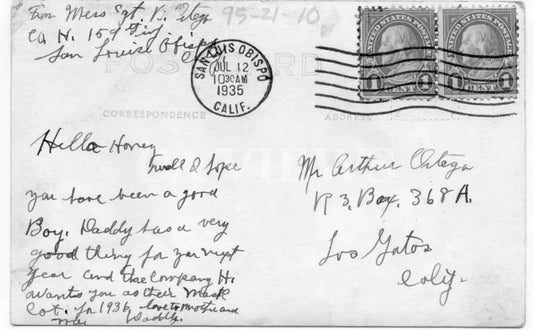 From Mess Sgt. V. Ortega
Co H. 159 Inf
San Louise Obispo
Calif
95-21-10
POST CARD
SAN LUIS OBISPO
JUL 12
1030AM
1935
CALIF.
UNITED STATES POSTAGE
1 CENT 1
UNITED STATES POSTAGE
1 CENT 1
CORRESPONDENCE
ADDRESS
Hello Honey
Well I hope
you have been a good
Boy. Daddy has a very
good thing for you next
year and the Company H.
wants you as their Mask
cot. for 1936, love to mother and
Daddy.
Mr Arthur Ortega
R 3, Box, 368 A.
Los Gatos
Calif-